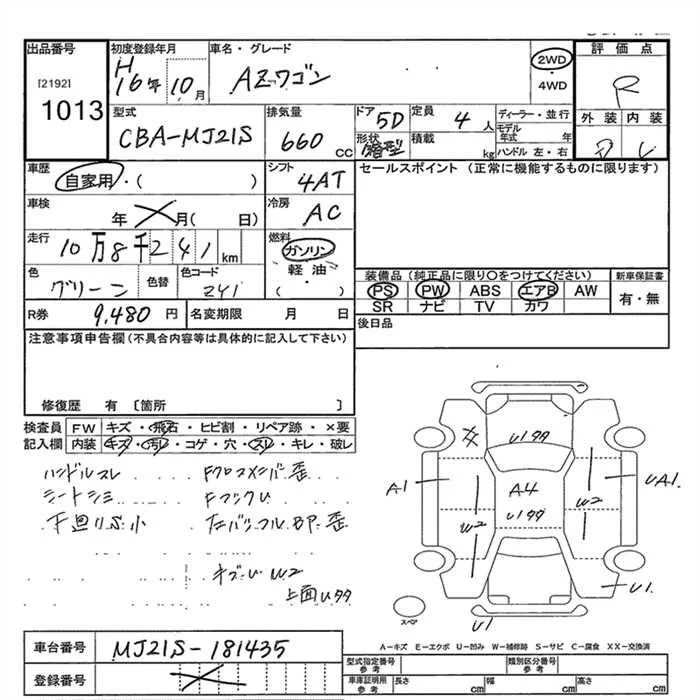 出品番号
[2192]
1013
初度登録年月
H16年10月
車名・グレード
AZワゴン
2WD
・
4WD
評価点
R
外装 内装
型式
CBA-MJ21S
排気量
660 CC
ドア 5D
形状 箱型
定員 4人
積載 kg
ディーラー・並行
モデル年式 年
ハンドル 左・右
車歴
自家用・( )
シフト
4AT
セールスポイント (正常に機能するものに限ります)
車検
年 月( 日)
冷房
AC
走行
10万8千241km
燃料
ガソリン
軽油・
( )
色
グリーン
色替
色コード
Z41
装備品(純正品に限り○をつけてください)
PS PW ABS エアB AW
SR ナビ TV カワ
新車保証書
有・無
R券 9,480円
名変期限 月 日
後日品
注意事項申告欄(不具合内容等は具体的に記入して下さい)
修復歴 有〔箇所 〕
検査員 FW キズ・飛石・ヒビ割・リペア跡・×要
記入欄 内装 キズ・汚レ・コゲ・穴・スレ・キレ・破レ
ハンドルスレ
シートシミ
下廻りS小
Fクロスメンバ歪
上面Uタタ
W2
A1
A4
W2
W2
UA1
U1
U1
スペア
A-キズ E-エクボ U-凹み W-補修跡 S-サビ C-腐食 XX-交換済
車台番号 MJ21S-181435
登録番号
型式指定番号 参考
類別区分番号 参考
車庫証明用 参考
長さ cm 幅 cm 高さ cm